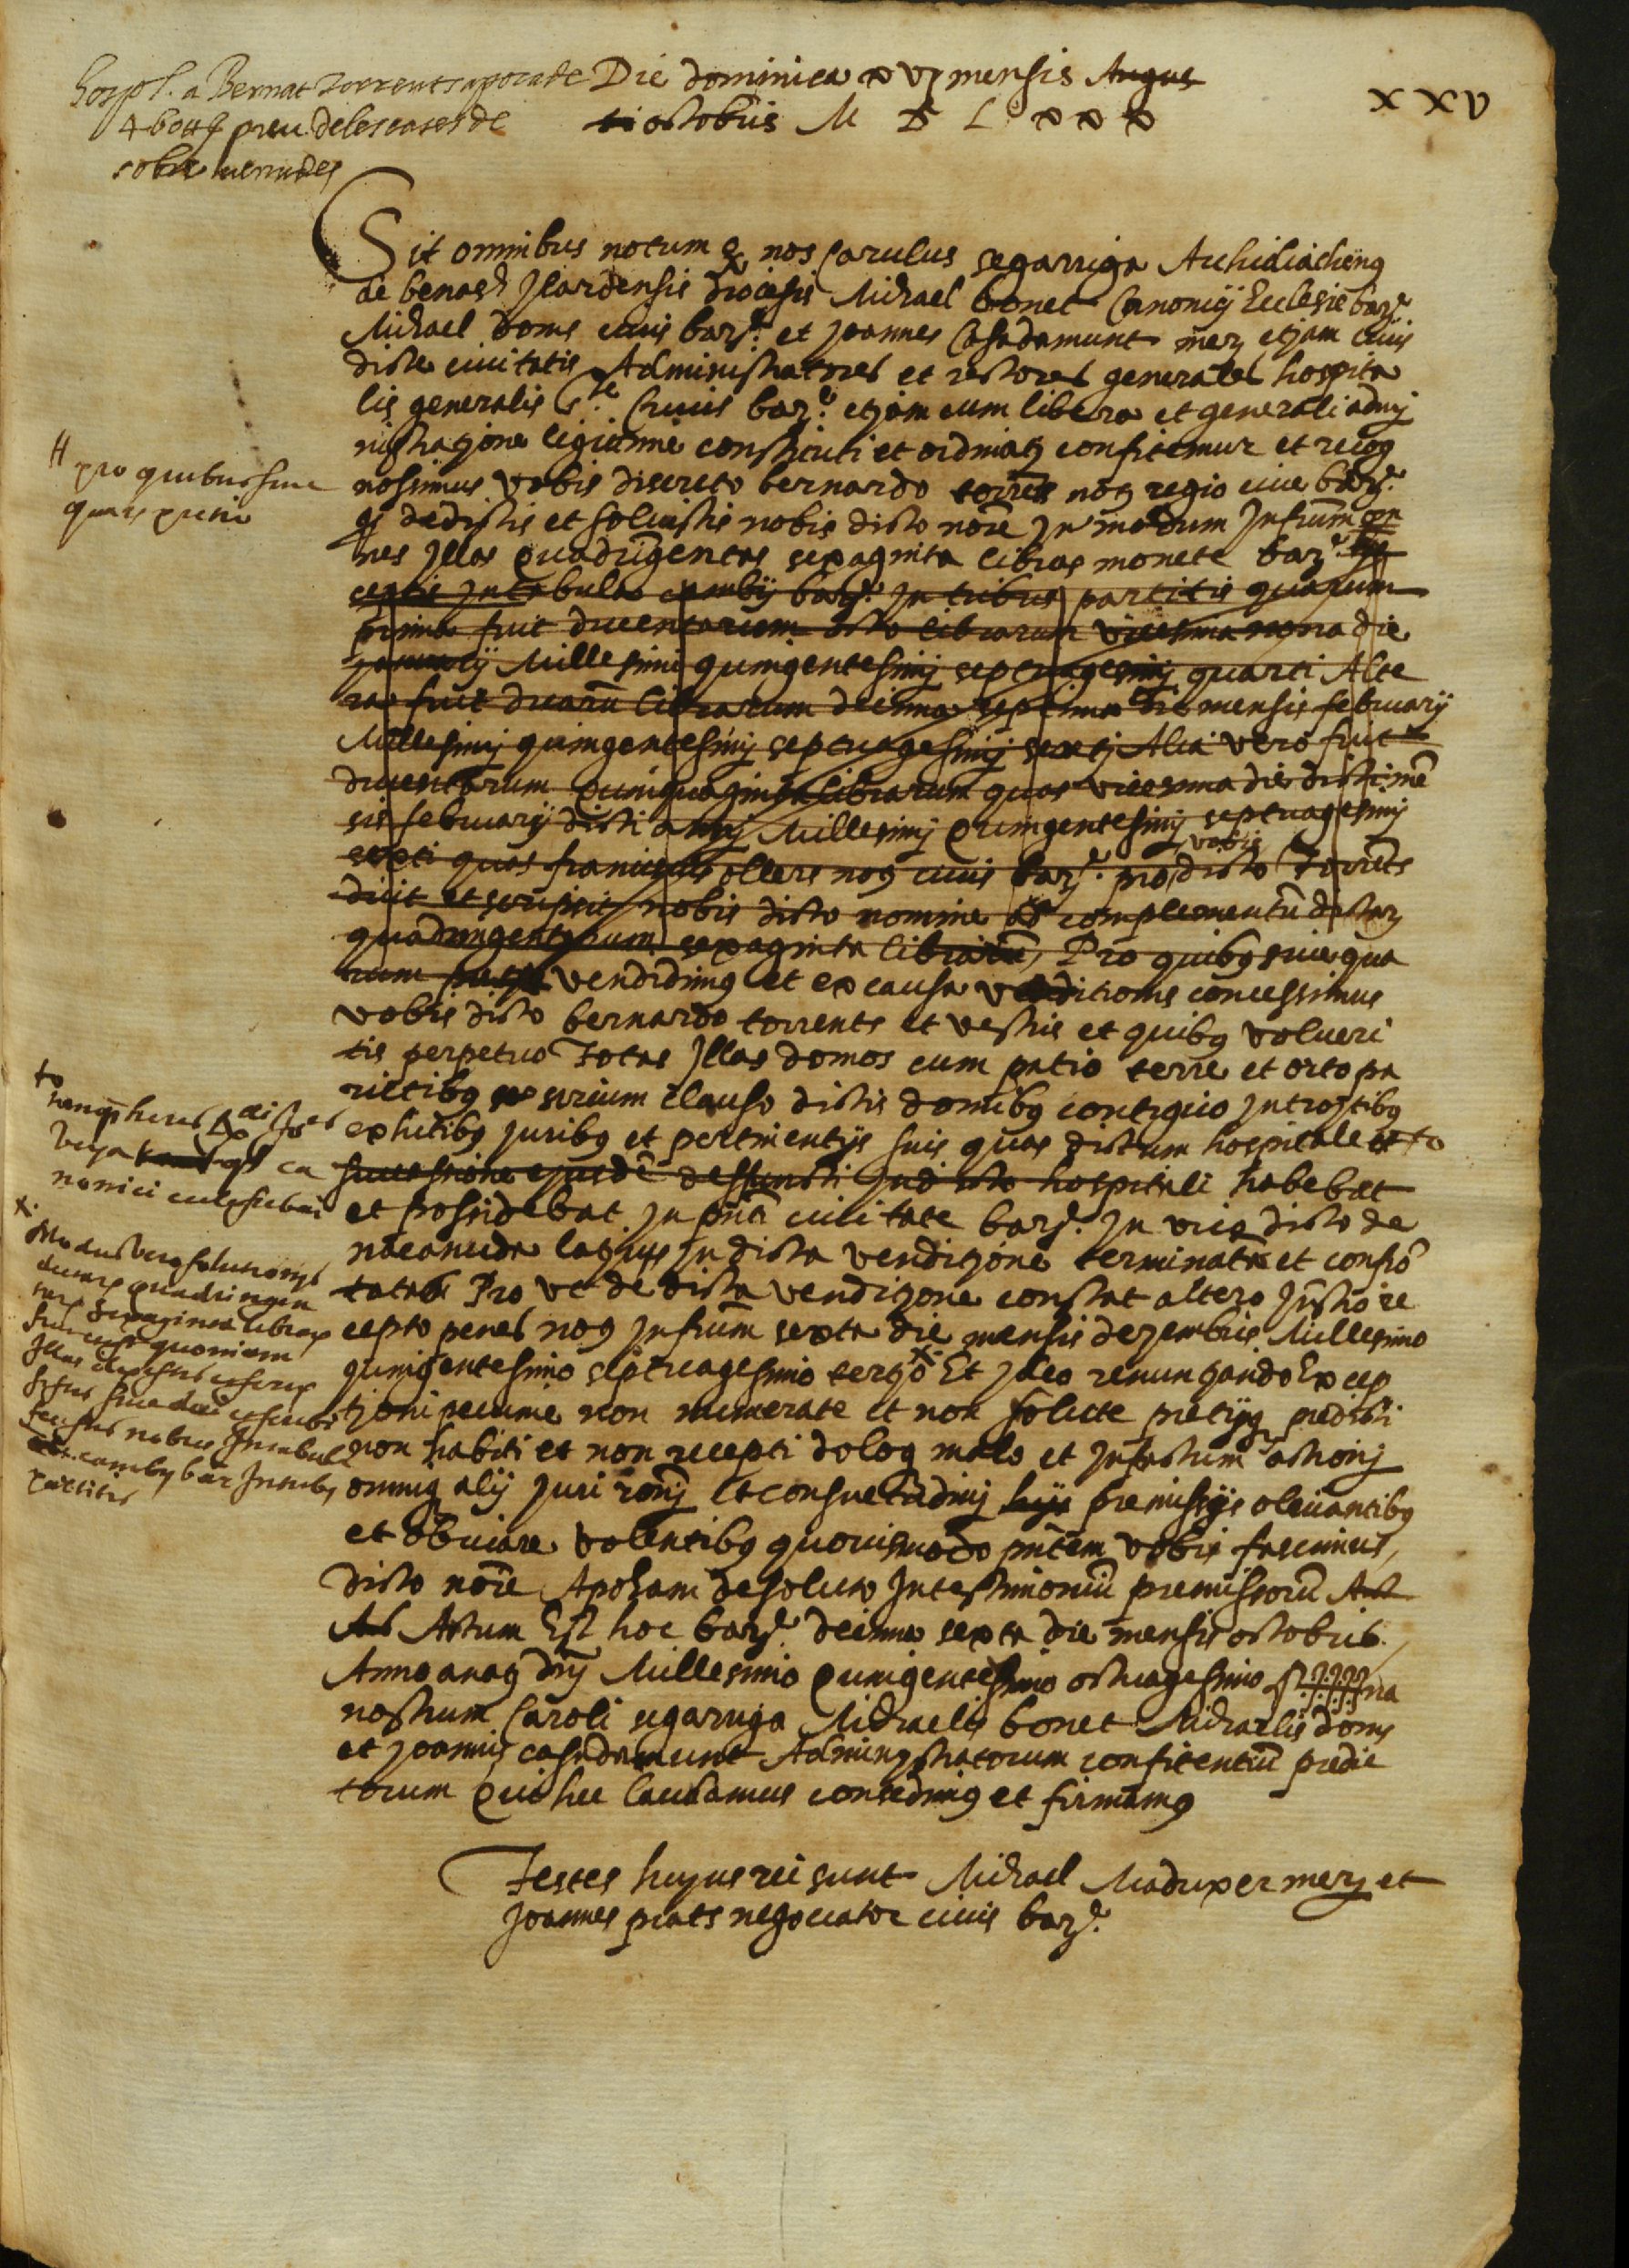 hospl. a Bernat Torrents apoca de
460 ll preu de les cases de
sobre
Die dominica xvj mensis Augus
ti octobris M D L x x x
XXV
Sit omnibus notum q nos Carulus segarriga Archidiachnus
de benasch Jlerdensis diocesis Michael bonet Canonicij Ecclesie barne
Michael doms ciuis barne et Joannes Casadamunt merz etjam ciuis
dicte ciuitatis Administratores et rectores generales hospita
lis generalis Ste Crucis barne etjam cum libera et generali admj
nistratione constituti et ordinatj confitemur et recog
noscimus vobis discreto bernardo torrents notj regio ciue barne
qd dedistis et soluistis nobis dicto noie Jn modum Jnfrum om
nes Jllas quadringentas sexaginta libras monete barne
Jn tabula cambij barne Jn tribus partitis quarum
prima fuit ducentarum octo librarum vicesima nona die
Januarij Millesimi quingentesimj septuagesimj quarti Alte
ra fuit duaru librarum decima septima die mensis februarij
Millesimj quingentesimj septuagesimj sextj Alia vero fuit
ducentarum quinquaginta librarum quas vicesima die dicti me
sis februarij dicti annj Millesimj quingentesimj septuagesimj
sexti quas franciscus ollers notj ciuis barne pro vobis dicto Torrents
dixit et scripsit nobis dicto nomine ad complementu dictarj
quadringentarum sexaginta libraru, Pro quibus siue qua
rum precio vendidimus et ex causa venditionis concessimus
vobis dicto bernardo torrents et vestris et quibus volueri
tis perpetuo Totas Jllas domos cum patio terre et orto pa
rietibus sursum clauso dictis domibus contiguo Jntrojtibus
exhitibus juribus et pertinentijs suis quas dictum hospitale
successione ejusde deffuncti Jn dicto hospitali habebat
et possidebat Jn pnti ciuitate barne Jn vico dicto de
latius Jn dicta venditjone terminatas et confro
tatas Pro vt de dicta venditjone constat altero Jnstro re
cepto penes notj Jnfrum sexta die mensis dezembris Millesimo
quingentesimo septuagesimo tertjo Et Jdeo renuntjando Excep
tjoni pecunie non numerate et non solute pretijq predicti
non habiti et non recepti doloq malo et Jnfactum actionj
omniq alij Juri ronj et consuetudinj hijs premissijs obuiantibus
et obuiare volentibus quouismodo pntem vobis facimus,
dicto noie Apocham de soluto Jn testimoniu premissoru Act
Ac Actum Est hoc barne decima sexta die mensis octobris
Anno a natj dnj Millesimo quingentesimo octuagesimo S????na
nostrum Caroli segarriga Michaelis bonet Michaelis doms
et Joannis casadamunt Adminystratorum confitentiu predic
torum Qui hec laudamus concedimus et firmamus
Testes hujus rei sunt Michael Maduxer merz et
Joannes prats negociator ciuis barne
pro quibus siue
quarum precio
Modus vero solutionis
dictarum quadringen
tarum sexaginta librarum
fuit quoniam
Jllas
siue
nobis Jn tabula
cambij bar Jn tribus
partitis